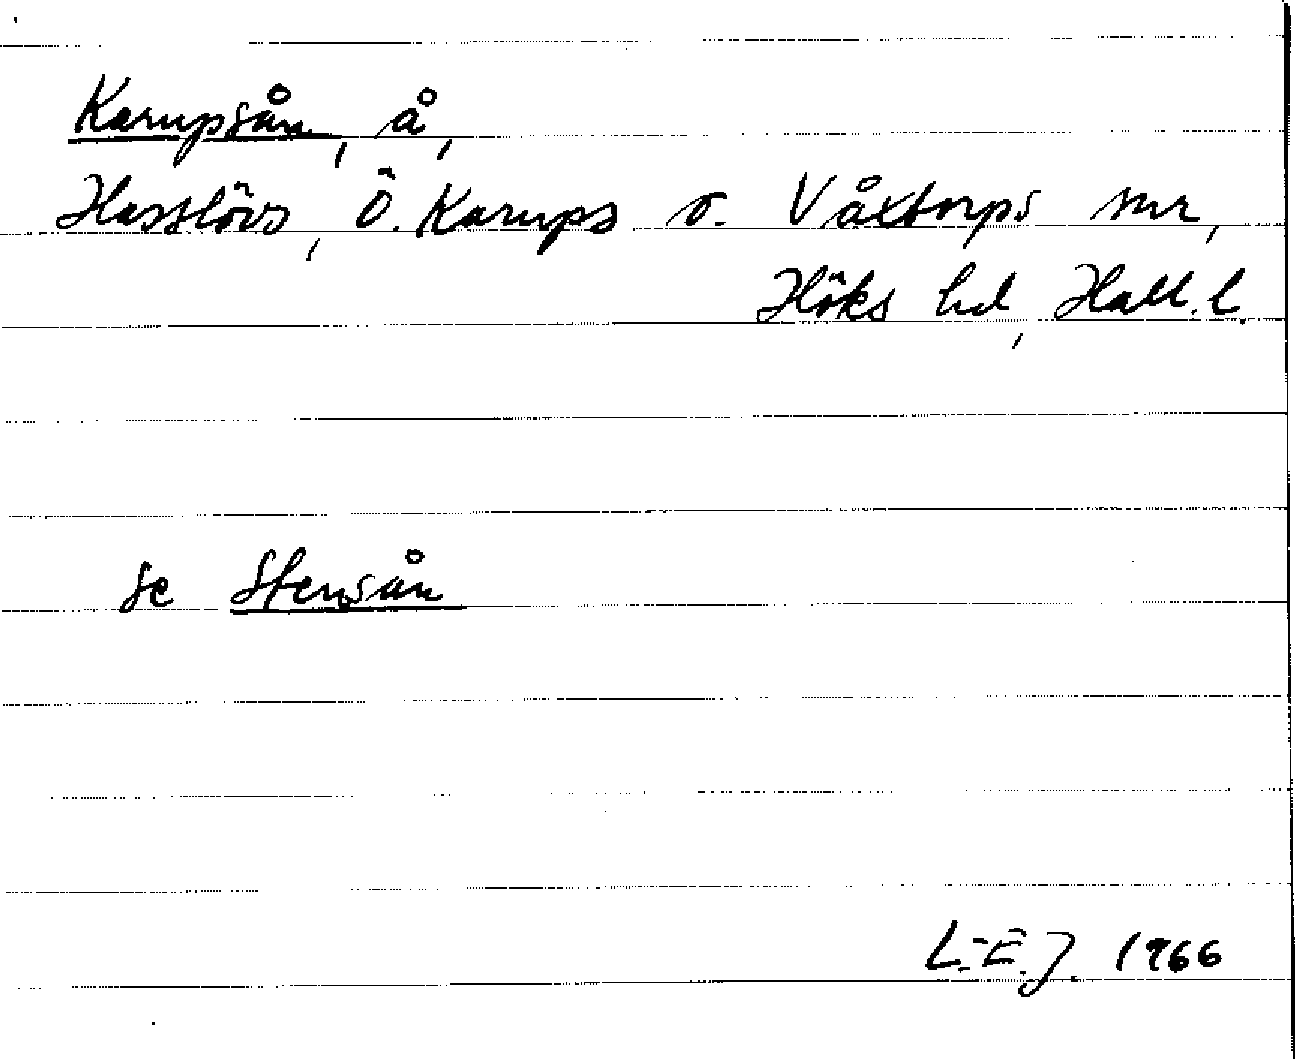 Karupsån, å,
Hasslövs, Ö. Karups o. Våxtorps snr,
Höks hd, Hall. l.
se Stensån
L.-E. J. 1966